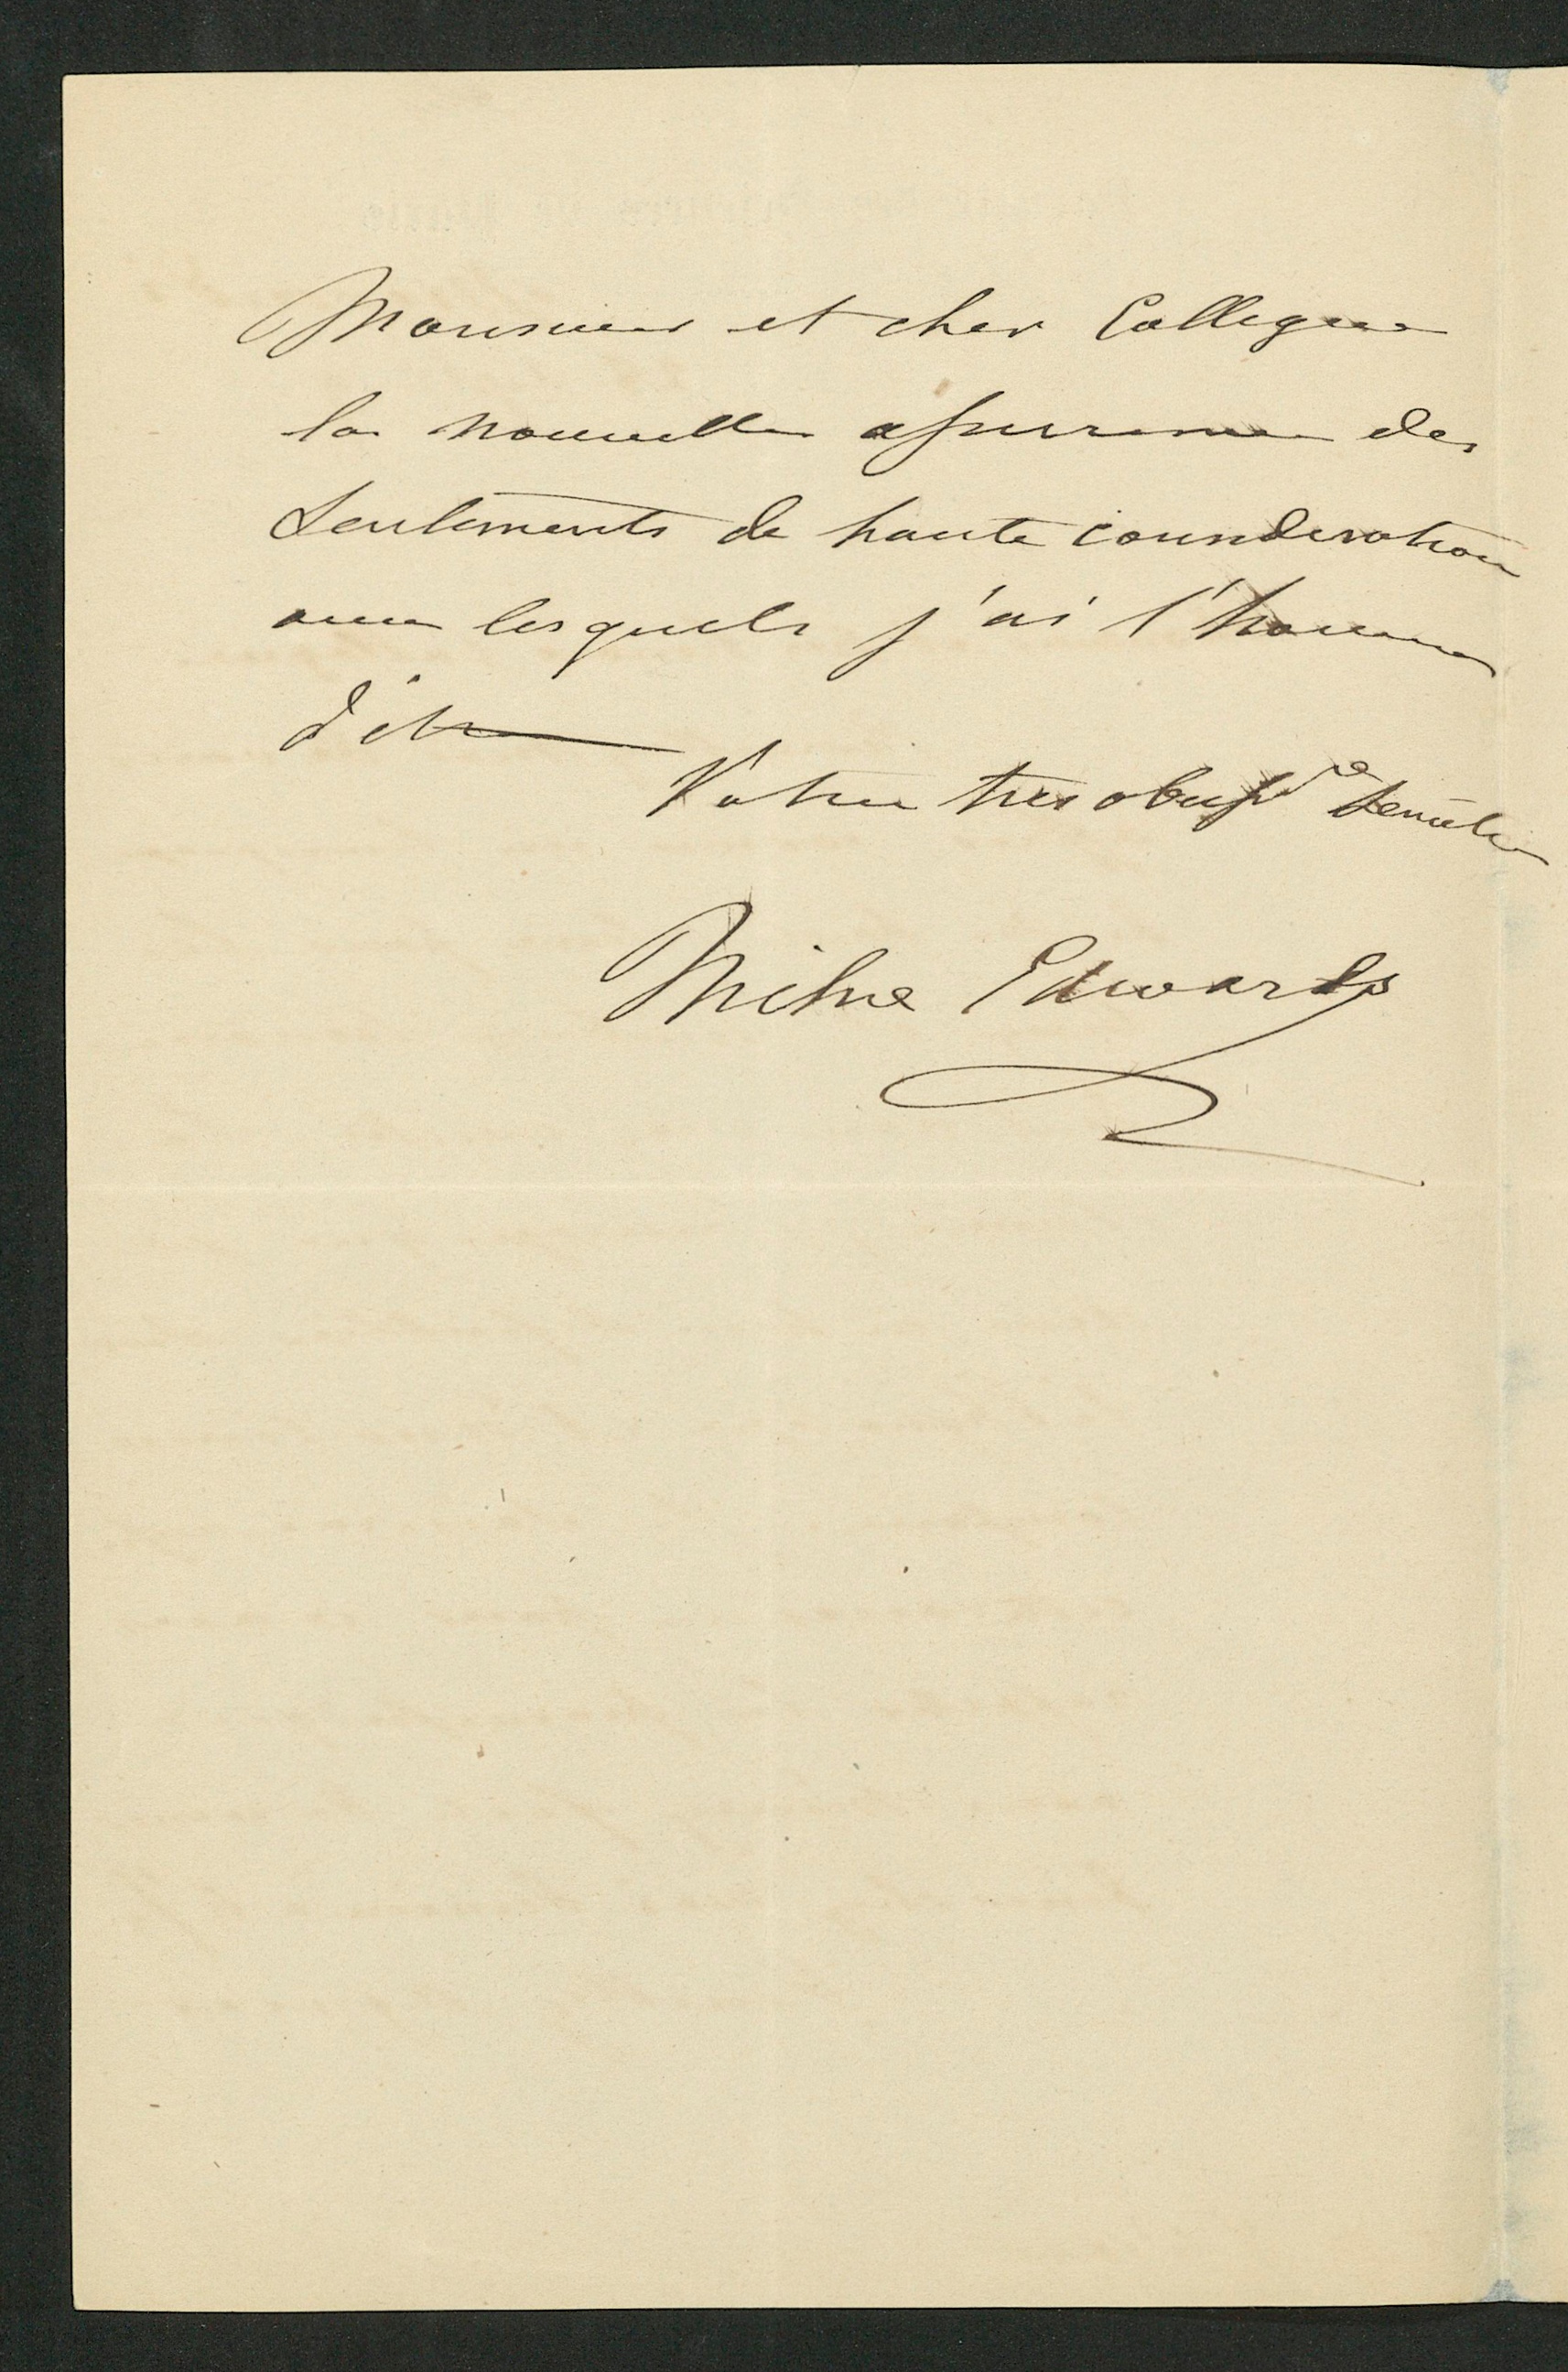 Monsieur et cher Collegue
la nouvelle assurance des
Sentiments de haute consideration
avec lesquels j'ai l'honneur
d'être
Votre tres obeiss Serviteur
Milne Edwards